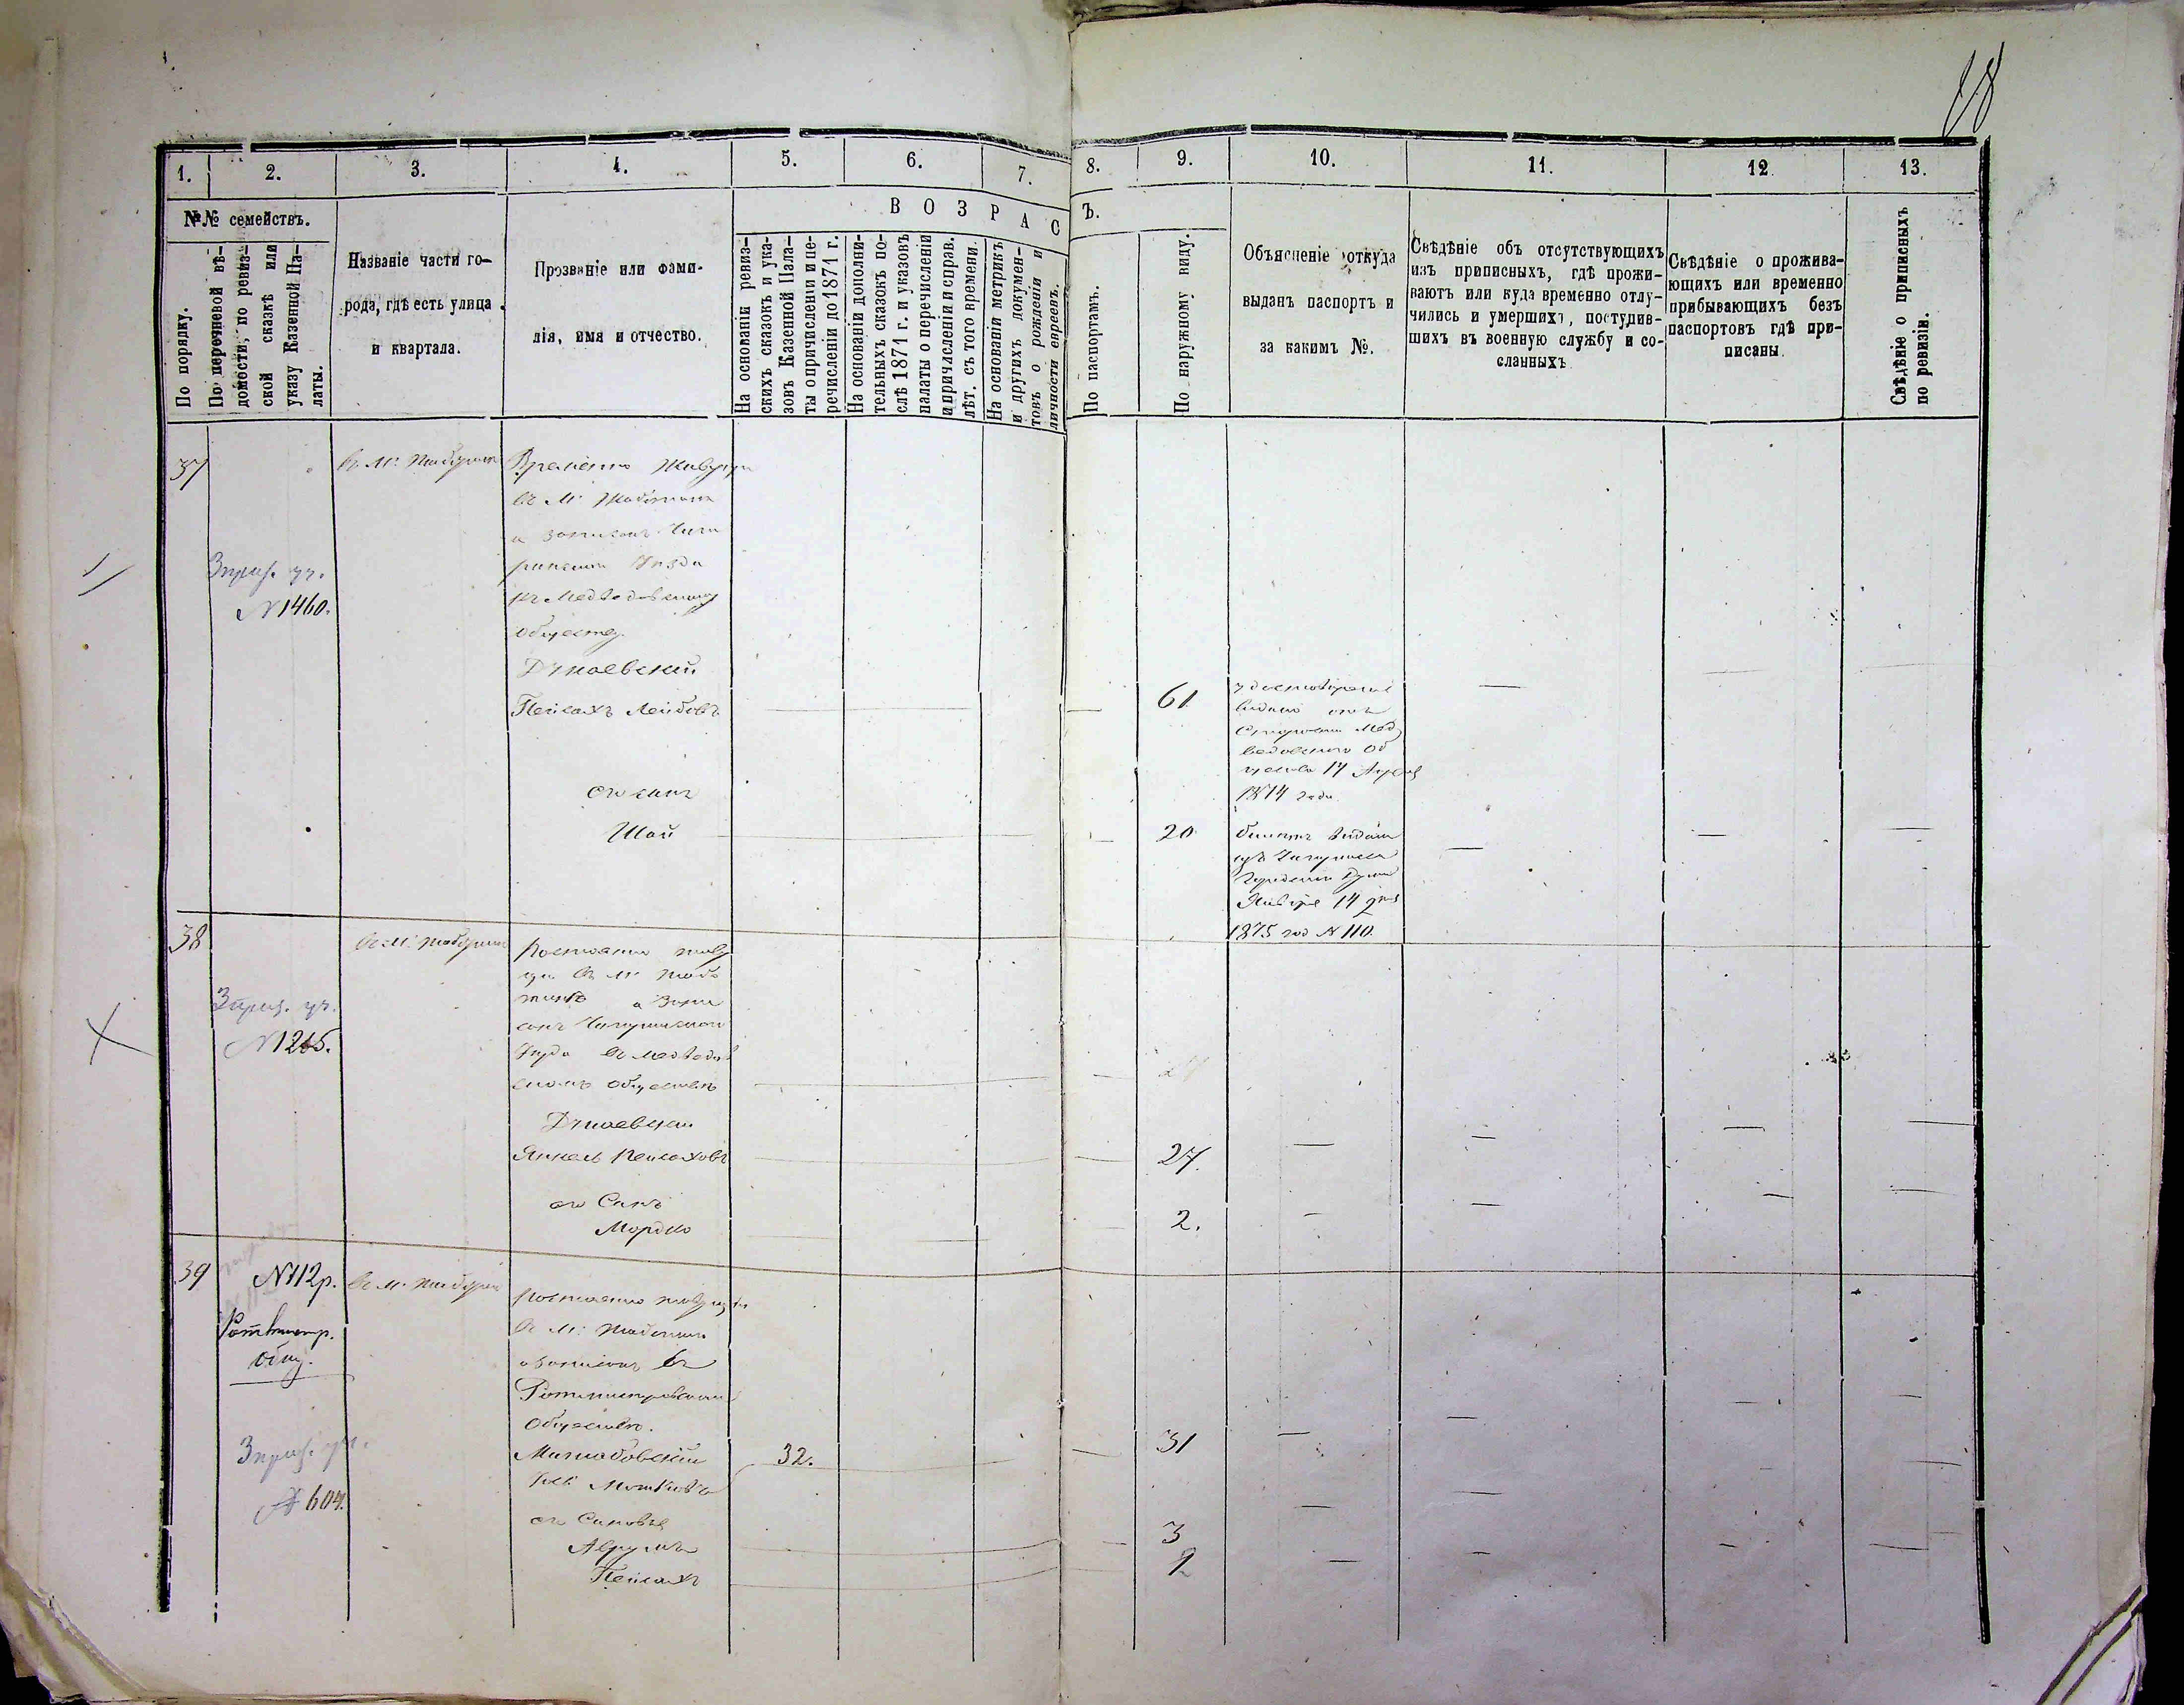 1. 2. 3. 4. 5. 6. 7. 8. 9. 10. 11. 12. 13.
№№ семействъ.
По порядку.
По перечневой вѣ-
домости, по ревиз-
ской сказкѣ или
указу Казенной Па-
латы.
Названіе части го-
рода, гдѣ есть улица
и квартала.
Прозваніе или фами-
лія, имя и отчество.
ВОЗРАСТЪ.
На основаніи ревиз-
скихъ сказокъ и ука-
зовъ Казенной Пала-
ты о причисленіи и пе-
речисленіи до 1871 г.
На основаніи дополни-
тельныхъ сказокъ по-
слѣ 1871 г. и указовъ
палаты о перечисленіи
и причисленіи и справ.
лѣт. съ того времени.
На основаніи метрикъ
и другихъ докумен-
товъ о рожденіи и
личности евреевъ.
По паспортамъ.
По наружному виду.
Объясненіе откуда
выданъ паспортъ и
за какимъ №.
Свѣдѣніе объ отсутствующихъ
изъ приписныхъ, гдѣ прожи-
ваютъ или куда временно отлу-
чились и умершихъ, поступив-
шихъ въ военную службу и со-
сланныхъ
Свѣдѣніе о прожива-
ющихъ или временно
прибывающихъ безъ
паспортовъ гдѣ при-
писаны.
Свѣдѣніе о приписныхъ
по ревизіи.
37
3 приз. уч.
N 1460.
Въ М. Жаботинѣ
Временно Живущи
въ М. Жаботинѣ
а записанъ Чиги
ринскаго Уѣзда
къ Медведовскому
Обществу.
Дчноевскій
Пейсахъ Лейбовъ
61
удостовереніе
видано отъ
Старосты Мед
ведовскаго Об
щества 14 Апреля
1874 года
его сынъ
Шай
20
билетъ виданъ
изъ Чигиринской
Городской Думы
Января 14 дня
1875 год N 110.
38
3 приз. уч.
N 1265.
Въ М. Жаботинѣ
Постоянно живу
щи въ М. Жабо
тинѣ а Запи
санъ Чигиринскаго
Уѣзда въ Медведов
скомъ Обществѣ
Дчноевскій
Янкель Пейсаховъ
27.
его Сынъ
Мордко
2.
39
N 112 р.
Ротмистр.
общ.
3 приз. уч.
N 604.
Въ М. Жаботинѣ
Постоянно живущи
въ М. Жаботинѣ
а записанъ въ
Ротмистровскомъ
Обществѣ.
32.
31
его Сыновья
Аврумъ
3
Пейсахъ
2